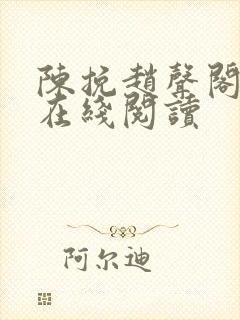 陳挩趙聲閣
在綫閱讀
阿尔迪